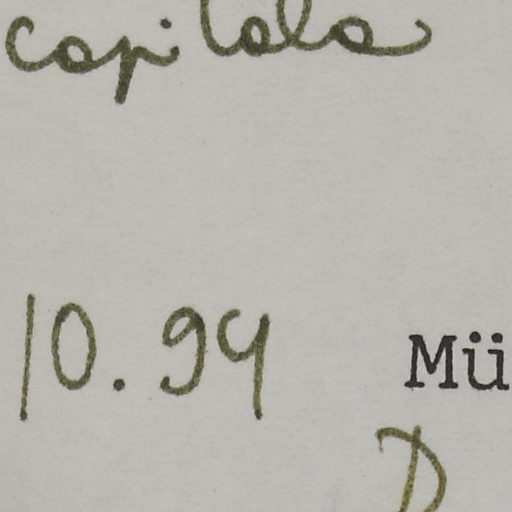 capitala
10.94 Mü
D